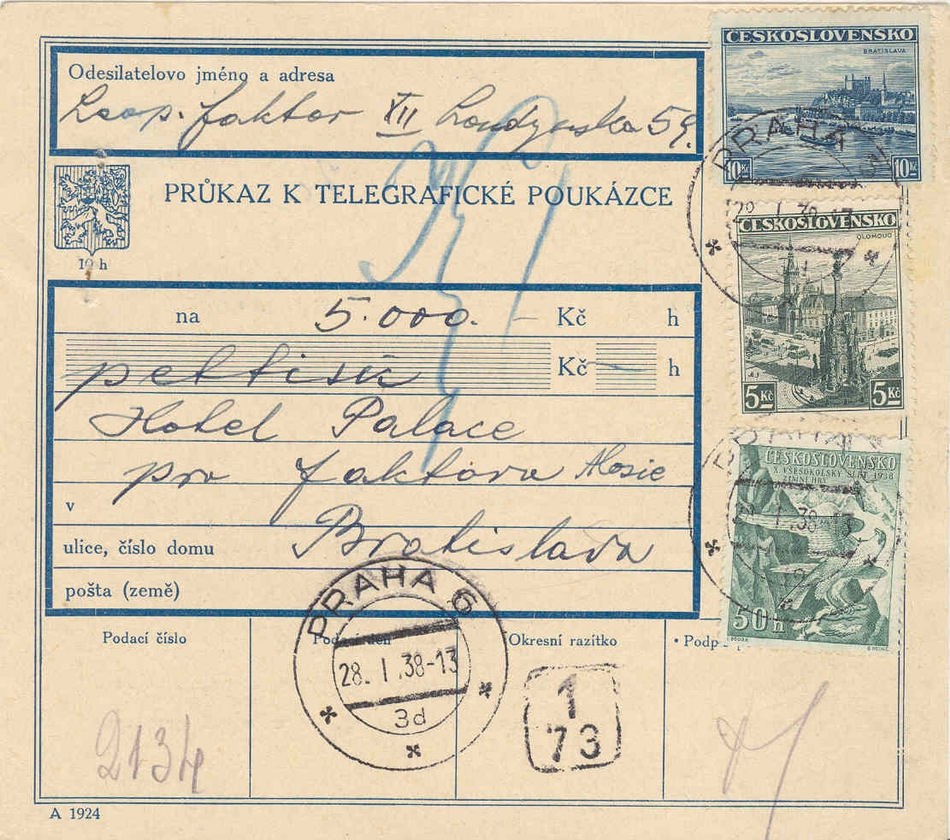 ČESKOSLOVENSKO
BRATISLAVA
10 Kč 10 Kč
Odesilatelovo jméno a adresa
Leop. Faktor XII Londynska 59.
PRAHA
28. I. 38-13
PRŮKAZ K TELEGRAFICKÉ POUKÁZCE
10 h
ČESKOSLOVENSKO
OLOMOUC
5 Kč 5 Kč
na 5.000.— Kč h
pettisíc Kč — h
Hotel Palace
pro Faktora
v
Bratislava
ulice, číslo domu
pošta (země)
PRAHA
ČESKOSLOVENSKO
X. VŠESOKOLSKÝ SLET 1938
ZIMNÍ HRY
28. I. 38-13
50 h
Podací číslo
Podací den
Okresní razítko
PRAHA 6
28. I. 38-13
3d
2134
1
73
A 1924